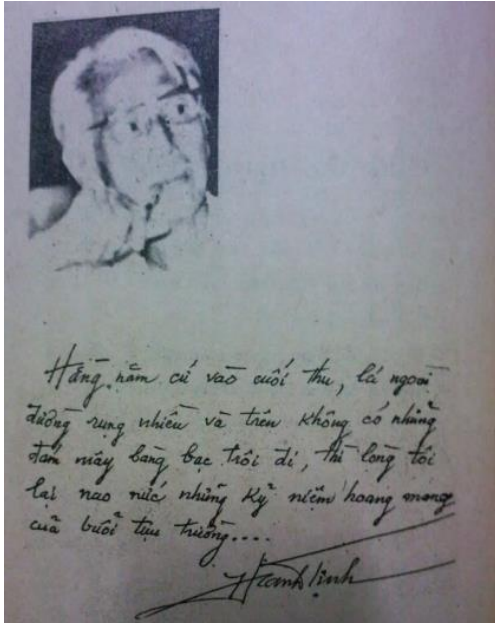 Hằng năm cứ vào cuối thu, lá ngoài
đường rụng nhiều và trên không có những
đám mây bàng bạc trôi đi, thì lòng tôi
lại nao nức những kỷ niệm hoang mang
của buổi tựu trường....
Thanh Tịnh